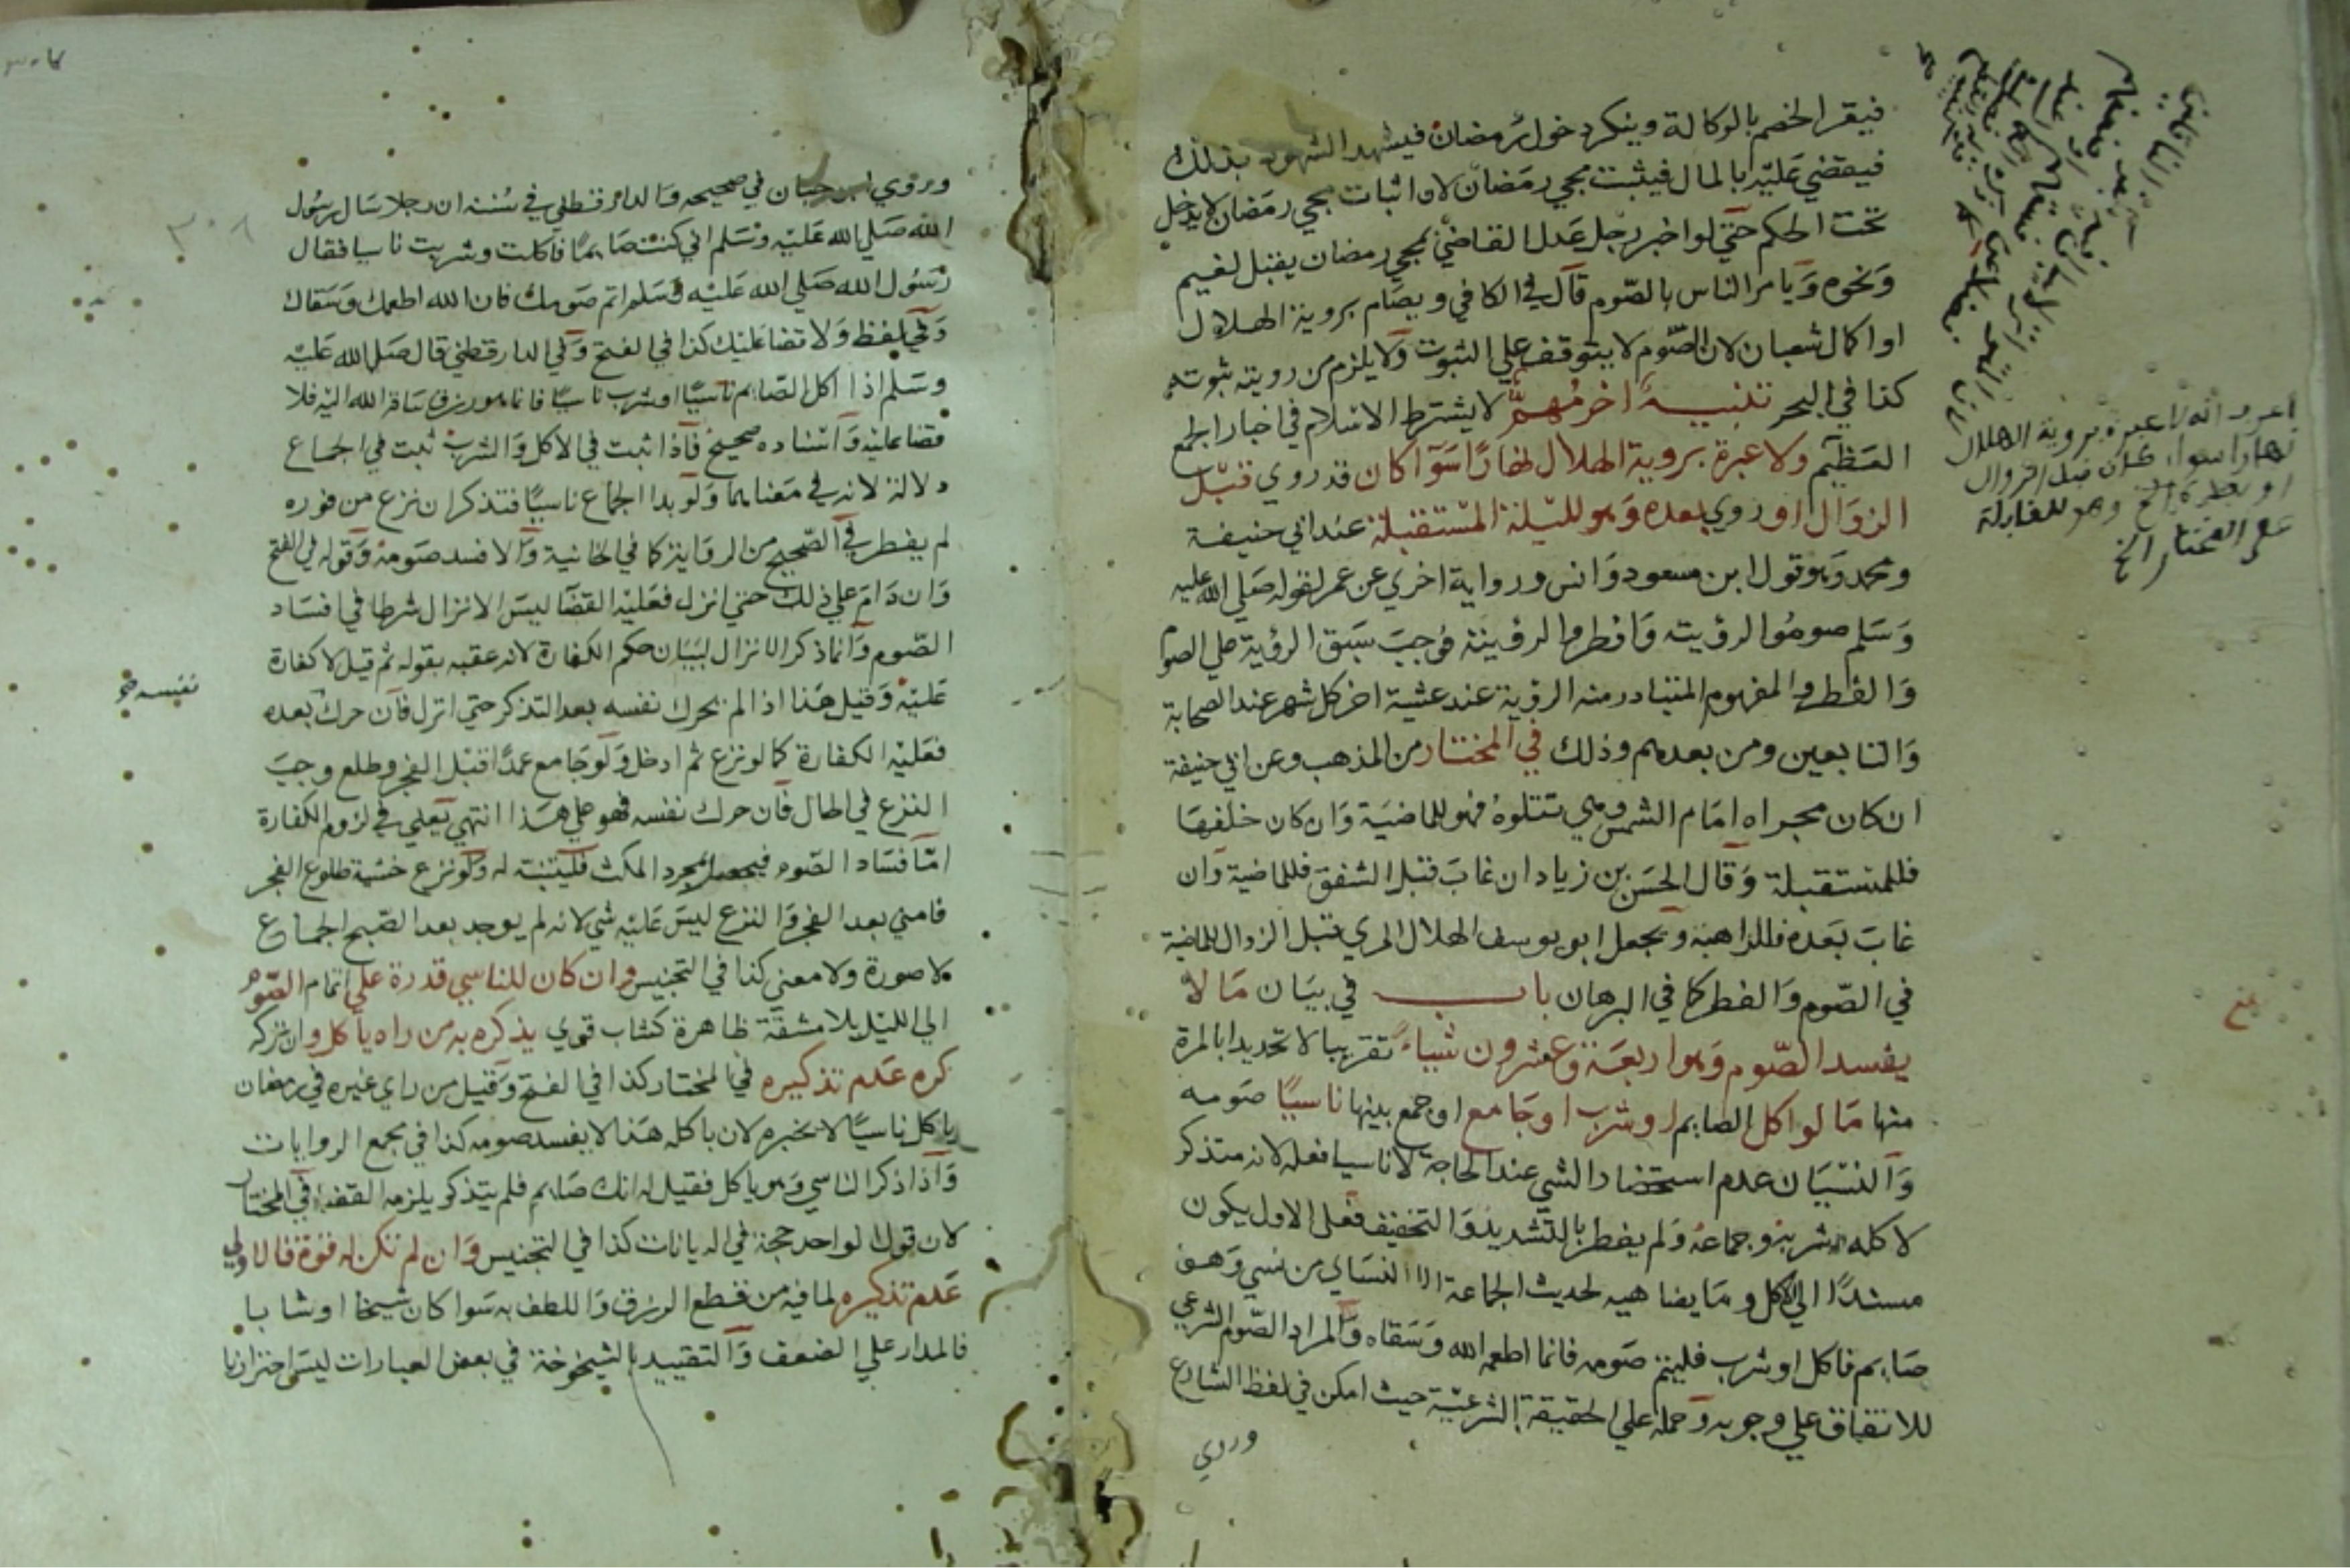 فيقر الخصم بالوكالة وينكر دخول رمضان فيشهد الشهود بذلك
فيقضي عليه بالمال فيثبت مجي رمضان لان اثبات مجي رمضان لا يدخل
تحت الحكم حتي لو اخبر رجل عدل القاضي بمجي رمضان يقبل لغيم
ونحوه ويامر الناس بالصوم قال في الكافي ويصام بروية الهلال
او اكمال شعبان لان الصوم لا يتوقف علي الثبوت ولا يلزم من رويته ثبوته
كذا في البحر تنبيه اخر مهم لا يشترط الاسلام في اخبار الجمع
العظيم ولا عبرة بروية الهلال نهارا سوآ كان قد روي قبل
الزوال او روي بعده وهو لليلة المستقبلة عند ابي حنيفة
ومحمد وهو قول ابن مسعود وانس ورواية اخري عن عمر لقوله صلي الله عليه
وسلم صوموا لرؤيته وافطروا لرؤيته فوجب سبق الرؤية علي الصوم
والفطر والمفهوم المتبادر منه الرؤية عند عشية اخر كل شهر عند الصحابة
والتابعين ومن بعدهم وذلك في المختار من المذهب وعن ابي حنيفة
ان كان مجراه امام الشمس وهي تتلوه فهو للماضية وان كان خلفها
فللمستقبلة وقال الحسن بن زياد ان غاب قبل الشفق فللماضية وان
غاب بعده فللراهنة ويجعل ابو يوسف الهلال المري قبل الزوال للماضية
في الصوم والفطر كما في البرهان باب في بيان ما لا
يفسد الصوم وهو اربعة وعشرون شيا تقريبا لا تحديدا بالمرة
منها ما لو اكل الصايم او شرب او جامع او جمع بينها ناسيا صومه
والنسيان عدم استحضار الشي عند الحاجة لا ناسيا فعله لانه متذكر
لاكله وشربه وجماعه ولم يفطر بالتشديد والتخفيف فعلي الاول يكون
مسندا الي الاكل وما يضاهيه لحديث الجماعة الا النسائي من نسي وهو
صايم فاكل او شرب فليتم صومه فانما اطعمه الله وسقاه والمراد الصوم الشرعي
للاتفاق علي وجوبه وحمله علي الحقيقة الشرعية حيث امكن في لفظ الشارع
وروي
اعرد انه لا عبرة بروية الهلال
نهارا سواء كان قبل الزوال
او بعده وهو للقابلة
علي المختار الخ
٣٠٨
وروي ابن حبان في صحيحه والدارقطني في سننه ان رجلا سال رسول
الله صلي الله عليه وسلم اني كنت صايما فاكلت وشربت ناسيا فقال
رسول الله صلي الله عليه وسلم اتم صومك فان الله اطعمك وسقاك
وفي لفظ ولا قضا عليك كذا في الفتح وفي الدارقطني قال صلي الله عليه
وسلم اذا اكل الصايم ناسيا او شرب ناسيا فانما هو رزق ساقه الله اليه فلا
قضا عليه واسناده صحيح فاذا ثبت في الاكل والشرب ثبت في الجماع
دلالة لانه في معناهما ولو بدا الجماع ناسيا فتذكر ان نزع من فوره
لم يفطر في الصحيح من الرواية كما في الخانية والا فسد صومه وقوله في الفتح
وان دام علي ذلك حتي انزل فعليه القضا ليس الانزال شرطا في افساد
الصوم وانما ذكر الانزال لبيان حكم الكفارة لانه عقبه بقوله ثم قيل لا كفارة
عليه وقيل هذا اذا لم يحرك نفسه بعد التذكر حتي انزل فان حرك بعده
نفسه صح
فعليه الكفارة كما لو نزع ثم ادخل ولو جامع عمدا قبل الفجر وطلع وجب
النزع في الحال فان حرك نفسه فهو علي هذا انتهي يعني في لزوم الكفارة
اما فساد الصوم فيحصل بمجرد المكث فليتنبه له ولو نزع خشية طلوع الفجر
فامني بعد الفجر والنزع ليس عليه شي لانه لم يوجد بعد الصبح الجماع
لا صورة ولا معني كذا في التجنيس وان كان للناسي قدرة علي اتمام الصوم
الي الليل بلا مشقة ظاهرة كشاب قوي يذكره به من راه ياكل وان تركه
كره عدم تذكيره في المختار كذا في الفتح وقيل من راي غيره في رمضان
ياكل ناسيا لا يخبره لان باكله هذا لا يفسد صومه كذا في مجمع الروايات
واذا ذكر الناسي وهو ياكل فقيل له انك صايم فلم يتذكر يلزمه القضا في المختار
لان قول الواحد حجة في الديانات كذا في التجنيس وان لم تكن له قوة فالاولي
عدم تذكيره لما فيه من قطع الرزق واللطف به سوا كان شيخا او شابا
فالمدار علي الضعف والتقييد بالشيخوخة في بعض العبارات ليس احترازيا